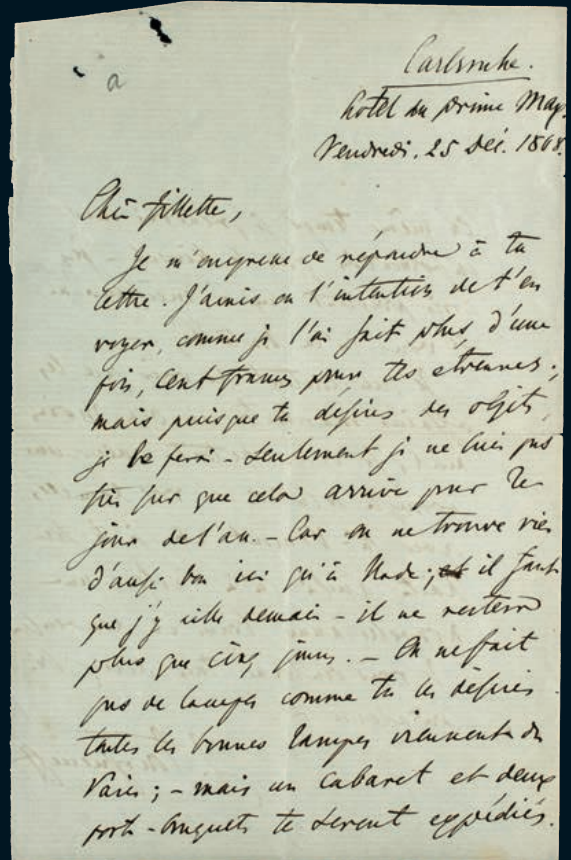 a
Carlsruhe.
hôtel du prince Max.
Vendredi, 25 Déc. 1868.
Chère fillette,
Je m'empresse de répondre à ta
lettre. J'avais eu l'intention de t'en
voyer, comme je l'ai fait plus d'une
fois, cent francs pour tes étrennes;
mais puisque tu désires des objets,
je le ferai - seulement je ne suis pas
très sûr que cela arrive pour le
jour de l'an. - Car on ne trouve rien
d'aussi bon ici qu'à Bade; et il faut
que j'y aille demain - il ne restera
plus que cinq jours. - On ne fait
pas de lampes comme tu les désires
toutes les bonnes lampes viennent de
Paris; - mais un cabaret et deux
porte-bouquets te seront expédiés.